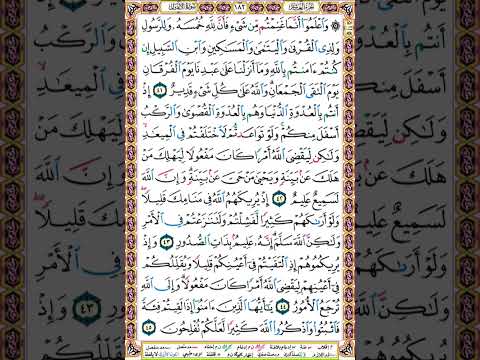 جُزْءُ الْعَاشِرِ ١٨٢ سُورَةُ الْأَنْفَالِ
وَاعْلَمُوا أَنَّمَا غَنِمْتُم مِّن شَيْءٍ فَأَنَّ لِلَّهِ خُمُسَهُ وَلِلرَّسُولِ
وَلِذِي الْقُرْبَىٰ وَالْيَتَٰمَىٰ وَالْمَسَٰكِينِ وَابْنِ السَّبِيلِ إِن
كُنتُمْ ءَامَنتُم بِاللَّهِ وَمَا أَنزَلْنَا عَلَىٰ عَبْدِنَا يَوْمَ الْفُرْقَانِ
يَوْمَ الْتَقَى الْجَمْعَانِ وَاللَّهُ عَلَىٰ كُلِّ شَيْءٍ قَدِيرٌ ٤١ إِذْ
أَنتُم بِالْعُدْوَةِ الدُّنْيَا وَهُم بِالْعُدْوَةِ الْقُصْوَىٰ وَالرَّكْبُ
أَسْفَلَ مِنكُمْ وَلَوْ تَوَاعَدتُّمْ لَاخْتَلَفْتُمْ فِي الْمِيعَٰدِ
وَلَٰكِن لِّيَقْضِيَ اللَّهُ أَمْرًا كَانَ مَفْعُولًا لِّيَهْلِكَ مَنْ
هَلَكَ عَن بَيِّنَةٍ وَيَحْيَىٰ مَنْ حَيَّ عَن بَيِّنَةٍ وَإِنَّ اللَّهَ
لَسَمِيعٌ عَلِيمٌ ٤٢ إِذْ يُرِيكَهُمُ اللَّهُ فِي مَنَامِكَ قَلِيلًا
وَلَوْ أَرَىٰكَهُمْ كَثِيرًا لَّفَشِلْتُمْ وَلَتَنَٰزَعْتُمْ فِي الْأَمْرِ
وَلَٰكِنَّ اللَّهَ سَلَّمَ إِنَّهُ عَلِيمٌ بِذَاتِ الصُّدُورِ ٤٣ وَإِذْ
يُرِيكُمُوهُمْ إِذِ الْتَقَيْتُمْ فِي أَعْيُنِكُمْ قَلِيلًا وَيُقَلِّلُكُمْ
فِي أَعْيُنِهِمْ لِيَقْضِيَ اللَّهُ أَمْرًا كَانَ مَفْعُولًا وَإِلَى اللَّهِ
تُرْجَعُ الْأُمُورُ ٤٤ يَٰأَيُّهَا الَّذِينَ ءَامَنُوا إِذَا لَقِيتُمْ فِئَةً
فَاثْبُتُوا وَاذْكُرُوا اللَّهَ كَثِيرًا لَّعَلَّكُمْ تُفْلِحُونَ ٤٥